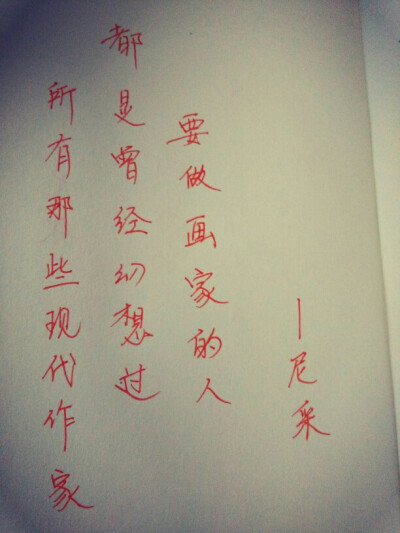 所有那些现代作家
都是曾经幻想过
要做画家的人
—尼采